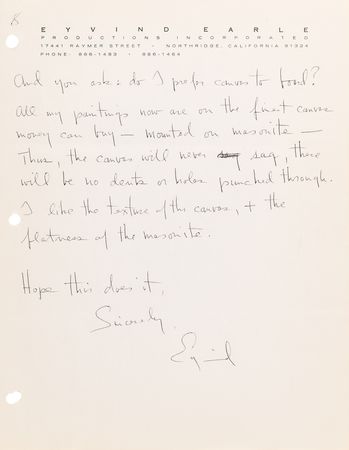 8
EYVIND EARLE
PRODUCTIONS INCORPORATED
17441 RAYMER STREET • NORTHRIDGE, CALIFORNIA 91324
PHONE: 886-1483 • 886-1464
And you ask: do I prefer canvas to board?
All my paintings now are on the finest canvas
money can buy — mounted on masonite —
Thus, the canvas will never sag, there
will be no dents or holes punched through.
I like the texture of the canvas, + the
flatness of the masonite.
Hope this does it,
Sincerely,
Eyvind